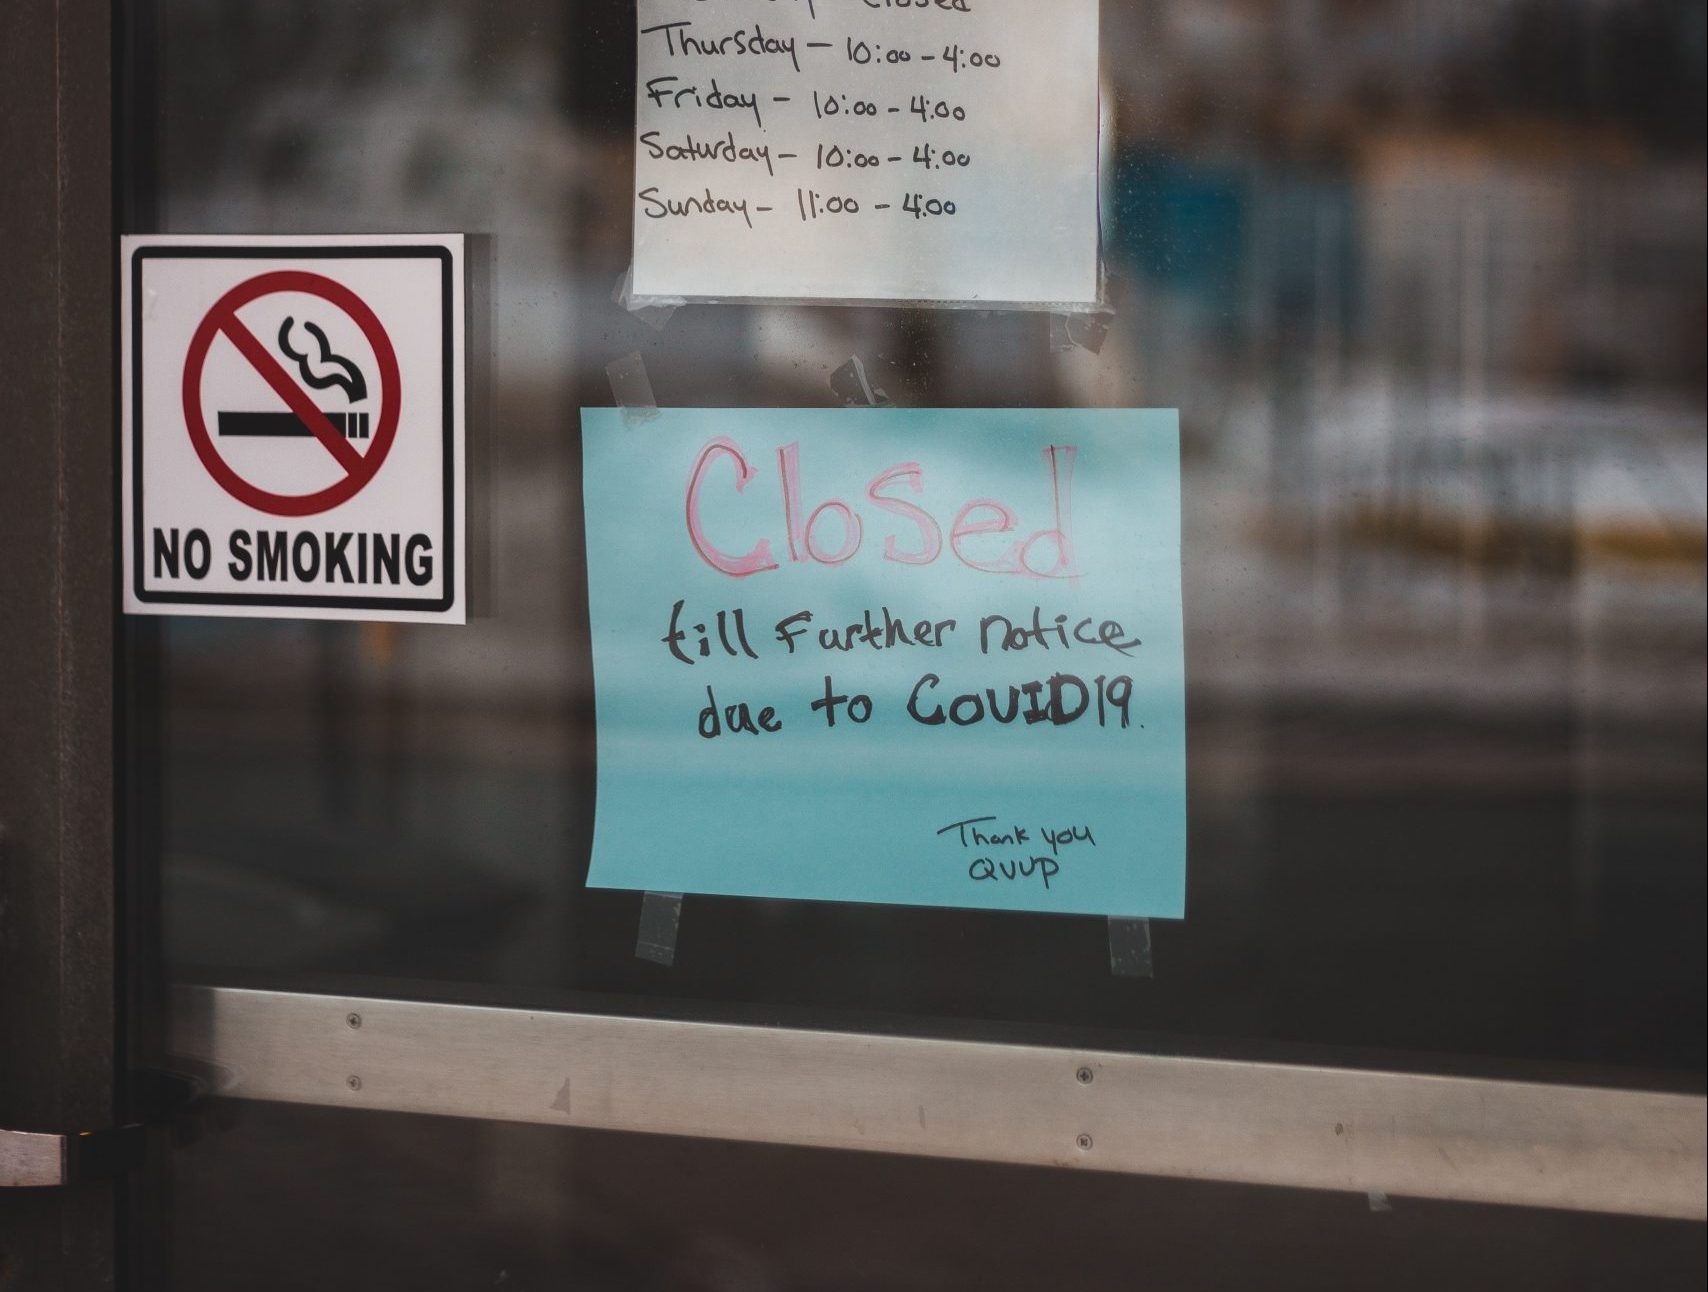 Closed
Thursday - 10:00 - 4:00
Friday - 10:00 - 4:00
Saturday - 10:00 - 4:00
Sunday - 11:00 - 4:00
NO SMOKING
Closed
till Further notice
due to COVID19.
Thank you
QVUP